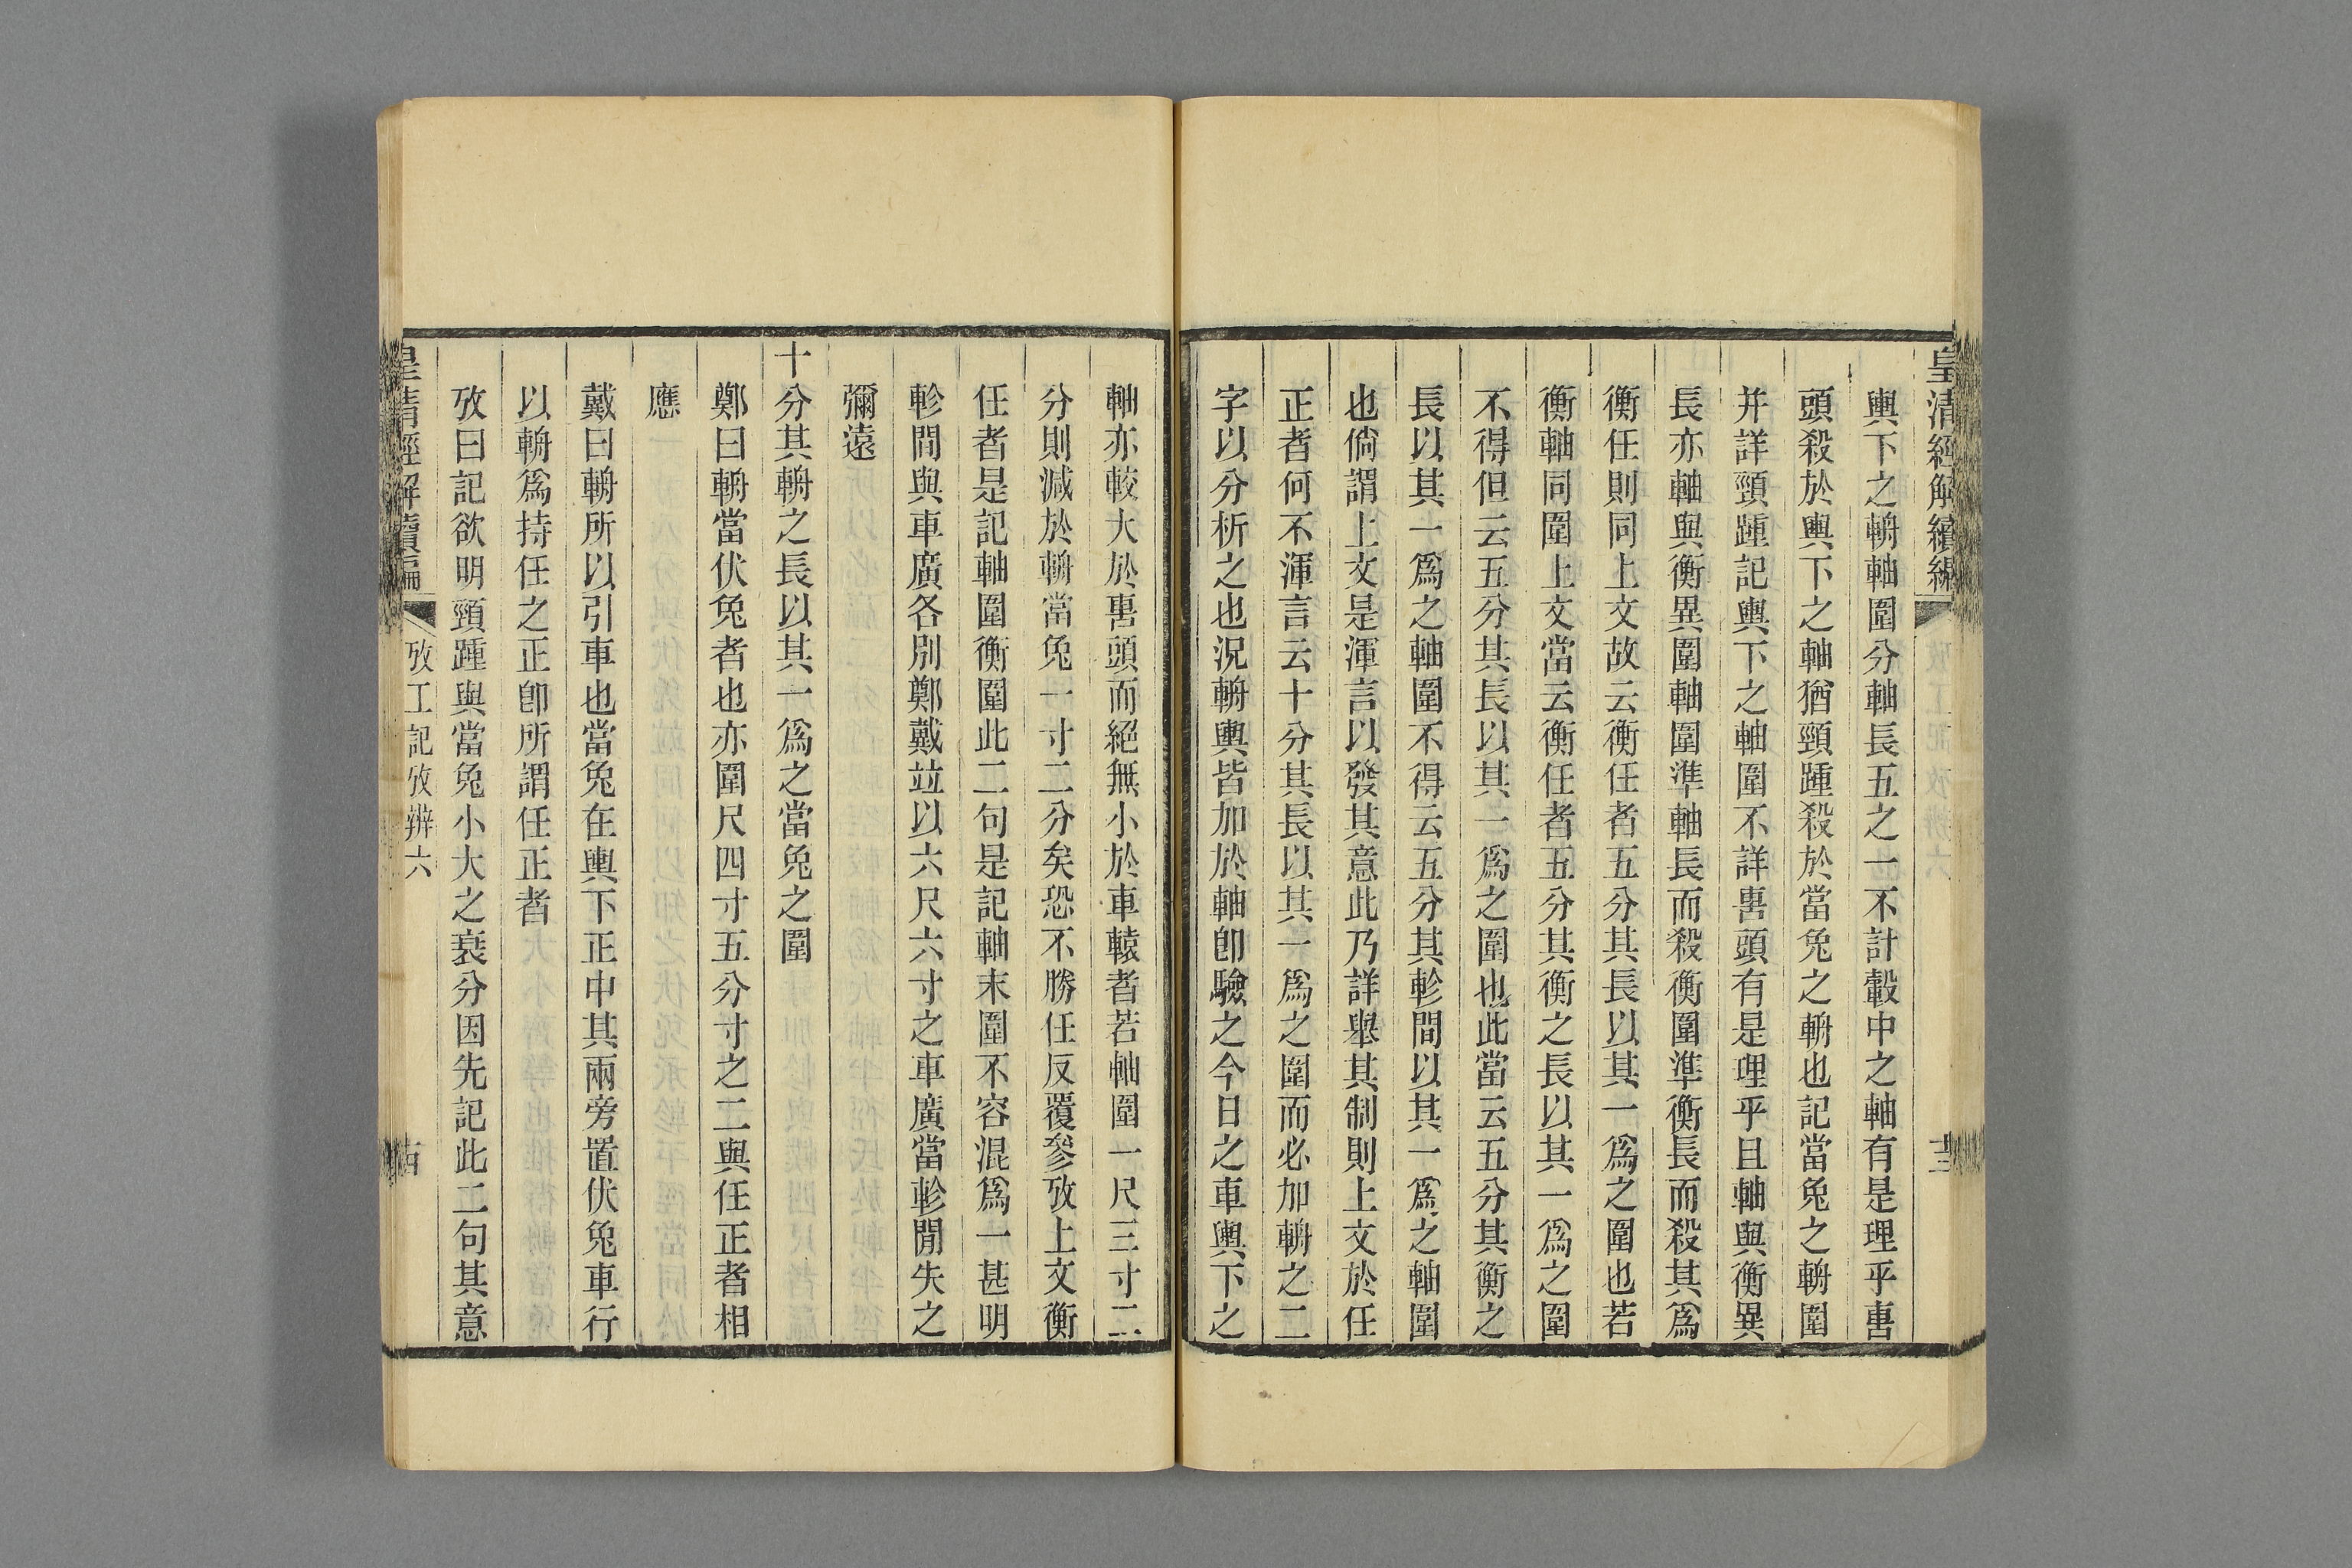 皇清經解續編
十三
輿下之輈軸圍分軸長五之一不計轂中之軸有是理乎軎
頭殺於輿下之軸猶頸踵殺於當兔之輈也記當兔之輈圍
并詳頸踵記輿下之軸圍不詳軎頭有是理乎且軸與衡異
長亦軸與衡異圍軸圍準軸長而殺衡圍準衡長而殺其爲
衡任則同上文故云衡任者五分其長以其一爲之圍也若
衡軸同圍上文當云衡任者五分其衡之長以其一爲之圍
不得但云五分其長以其一爲之圍也此當云五分其衡之
長以其一爲之軸圍不得云五分其軫間以其一爲之軸圍
也倘謂上文是渾言以發其意此乃詳舉其制則上文於任
正者何不渾言云十分其長以其一爲之圍而必加輈之二
字以分析之也況輈輿皆加於軸卽驗之今日之車輿下之
軸亦較大於軎頭而絕無小於車轅者若軸圍一尺三寸二
分則減於輈當兔一寸二分矣恐不勝任反覆參攷上文衡
任者是記軸圍衡圍此二句是記軸末圍不容混爲一甚明
軫間與車廣各別鄭戴竝以六尺六寸之車廣當軫閒失之
彌遠
十分其輈之長以其一爲之當兔之圍
鄭曰輈當伏兔者也亦圍尺四寸五分寸之二與任正者相
應
戴曰輈所以引車也當兔在輿下正中其兩旁置伏兔車行
以輈爲持任之正卽所謂任正者
攷曰記欲明頸踵與當兔小大之衰分因先記此二句其意
皇清經解續編
攷工記攷辨六
古